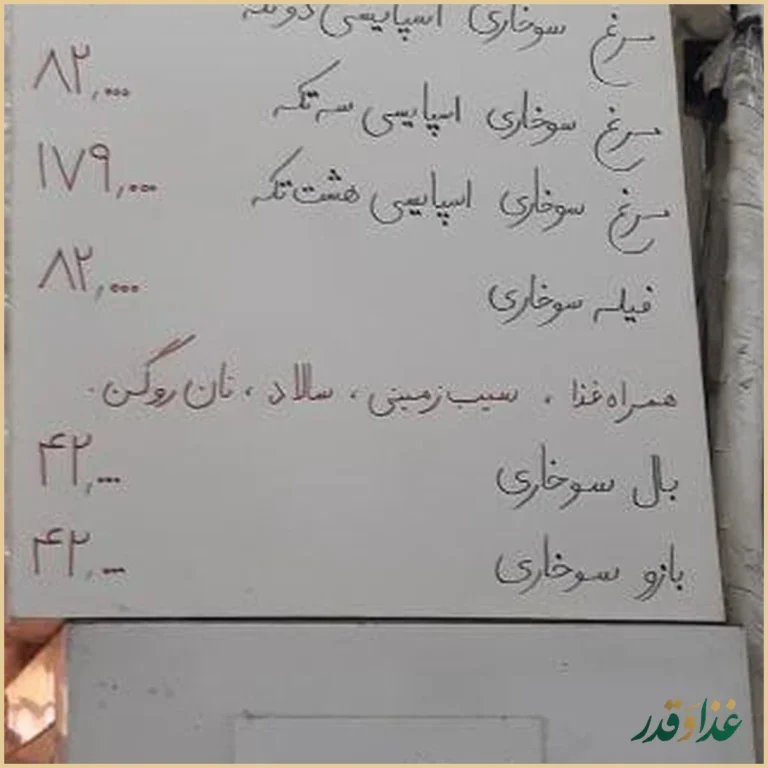 مرغ سوخاری اسپایسی دو تکه
مرغ سوخاری اسپایسی سه تکه ۸۲,۰۰۰
مرغ سوخاری اسپایسی هشت تکه ۱۷۹,۰۰۰
فیله سوخاری ۸۲,۰۰۰
همراه غذا ، سیب زمینی ، سالاد ، نان روگن .
بال سوخاری ۴۲,۰۰۰
بازو سوخاری ۴۲,۰۰۰
غذا و قدر